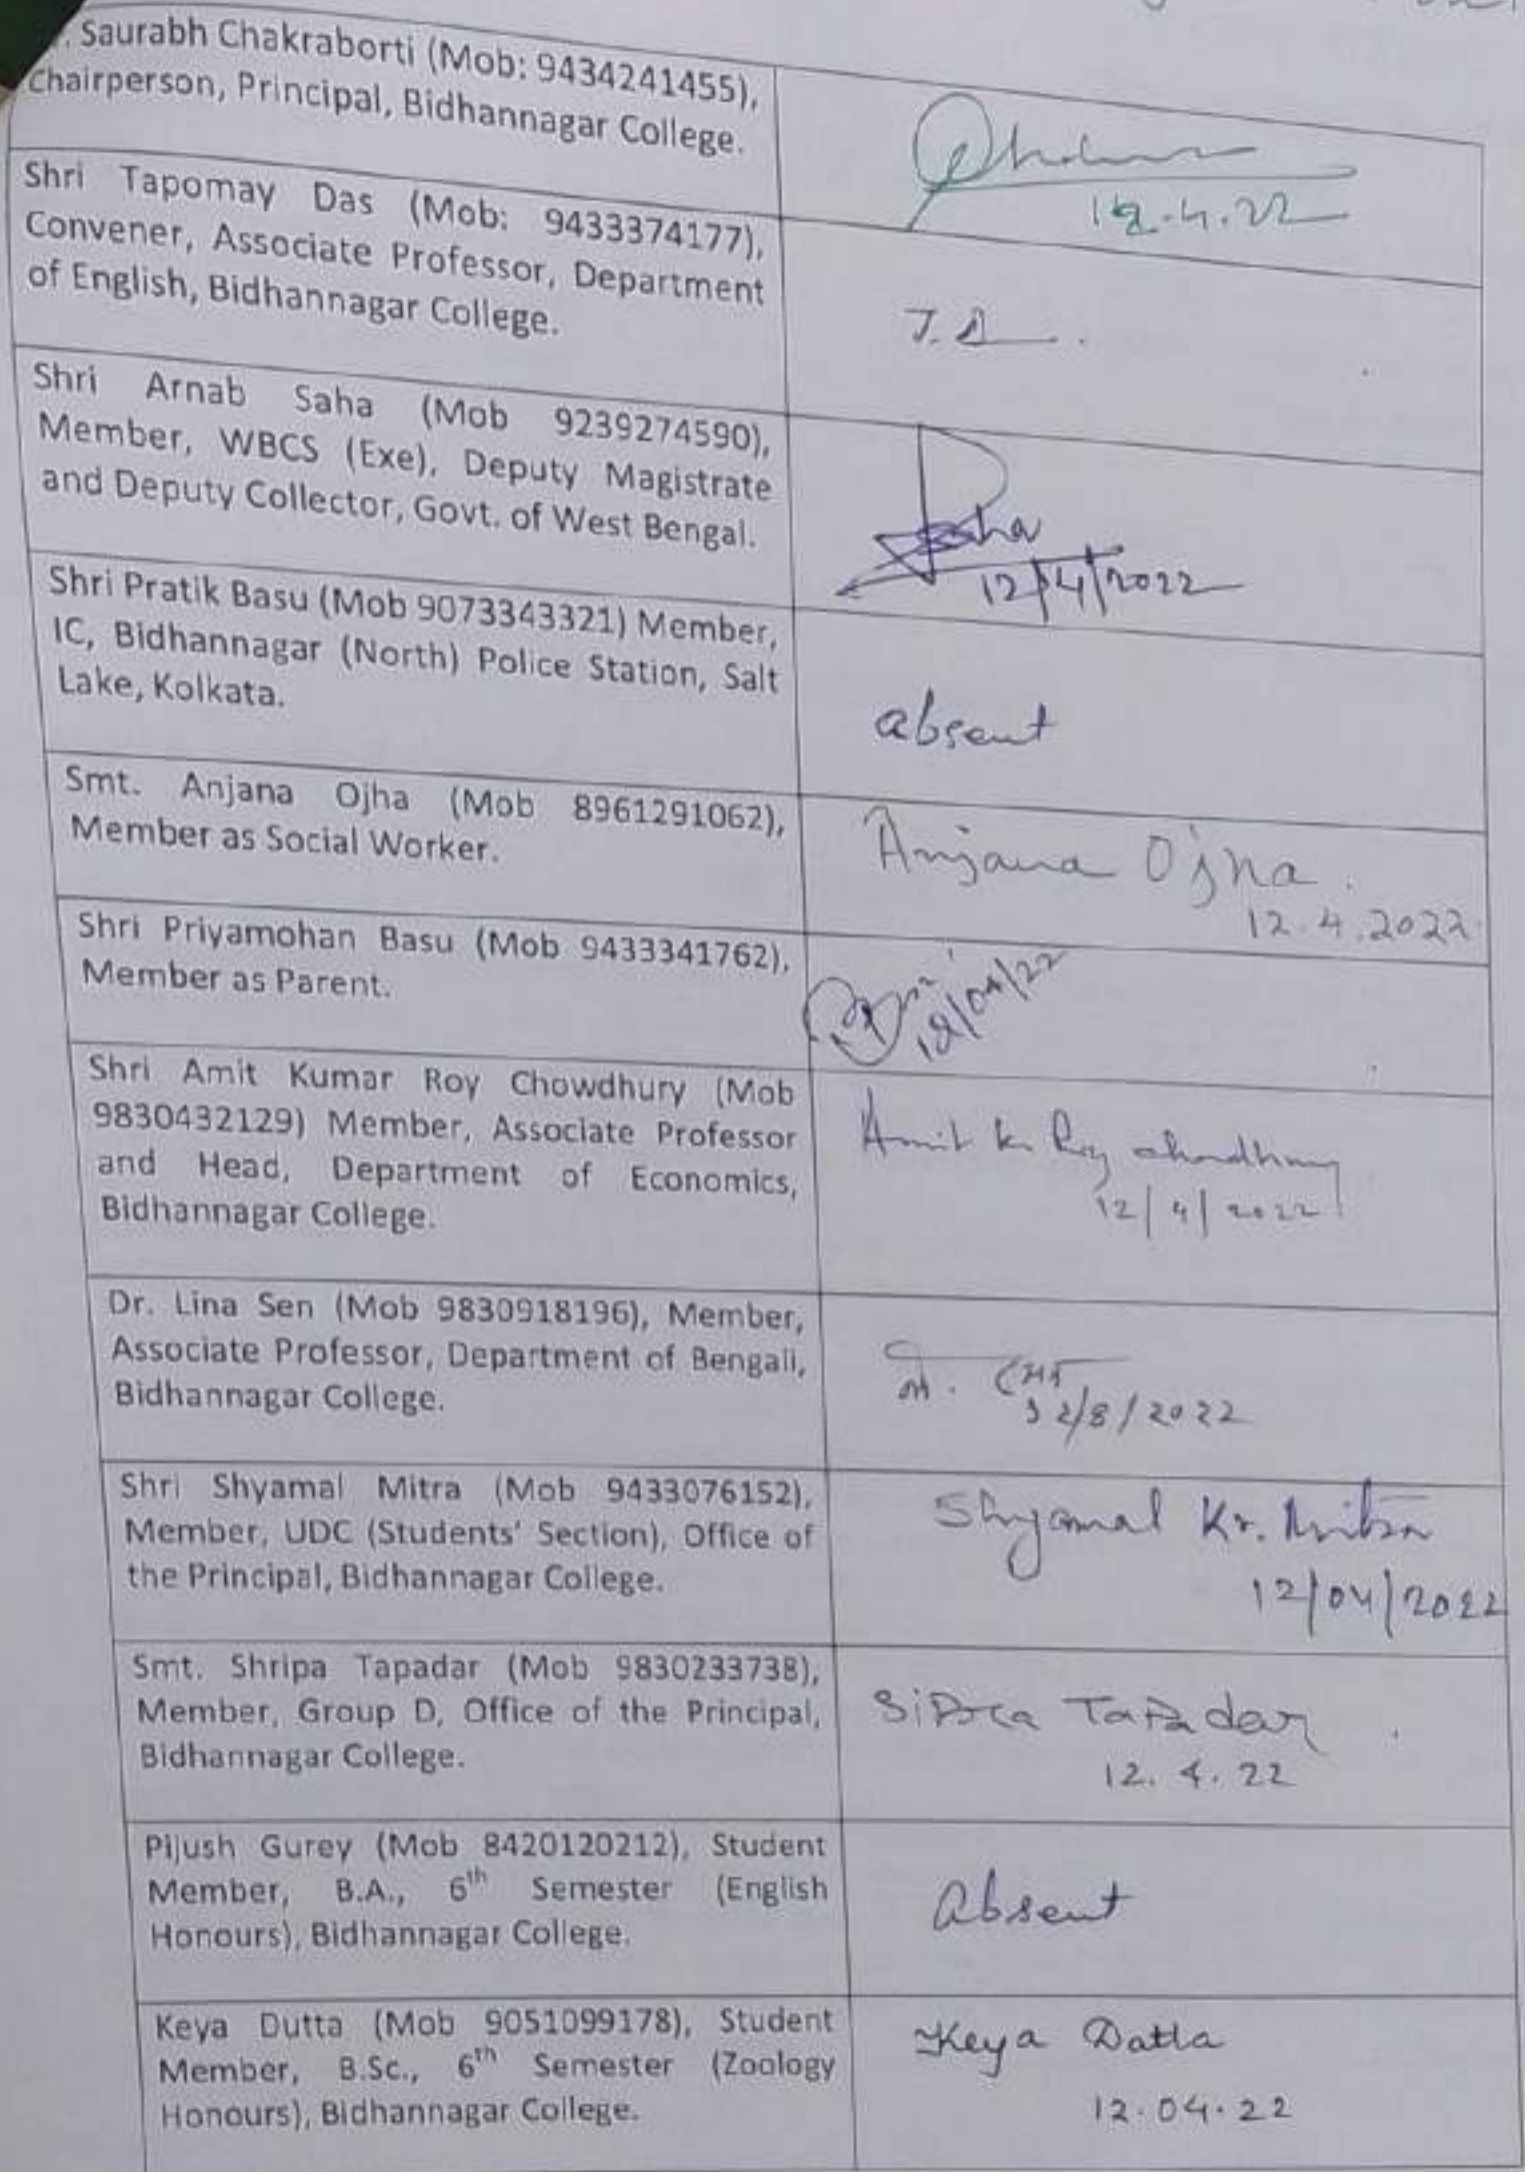 . Saurabh Chakraborti (Mob: 9434241455),
Chairperson, Principal, Bidhannagar College.
12.4.22
Shri Tapomay Das (Mob: 9433374177),
Convener, Associate Professor, Department
of English, Bidhannagar College.
T. D
Shri Arnab Saha (Mob 9239274590),
Member, WBCS (Exe), Deputy Magistrate
and Deputy Collector, Govt. of West Bengal.
12/4/2022
Shri Pratik Basu (Mob 9073343321) Member,
IC, Bidhannagar (North) Police Station, Salt
Lake, Kolkata.
absent
Smt. Anjana Ojha (Mob 8961291062),
Member as Social Worker.
Anjana Ojha.
12.4.2022
Shri Priyamohan Basu (Mob 9433341762),
Member as Parent.
12/04/22
Shri Amit Kumar Roy Chowdhury (Mob
9830432129) Member, Associate Professor
and Head, Department of Economics,
Bidhannagar College.
Amit k Roy chowdhury
12/4/2022
Dr. Lina Sen (Mob 9830918196), Member,
Associate Professor, Department of Bengali,
Bidhannagar College.
সেন
১২/৪/২০২২
Shri Shyamal Mitra (Mob 9433076152),
Member, UDC (Students' Section), Office of
the Principal, Bidhannagar College.
Shyamal Kr. Mitra
12/04/2022
Smt. Shripa Tapadar (Mob 9830233738),
Member, Group D, Office of the Principal,
Bidhannagar College.
Sipra Tapadar
12.4.22
Pijush Gurey (Mob 8420120212), Student
Member, B.A., 6th Semester (English
Honours), Bidhannagar College.
Absent
Keya Dutta (Mob 9051099178), Student
Member, B.Sc., 6th Semester (Zoology
Honours), Bidhannagar College.
Keya Datta
12.04.22